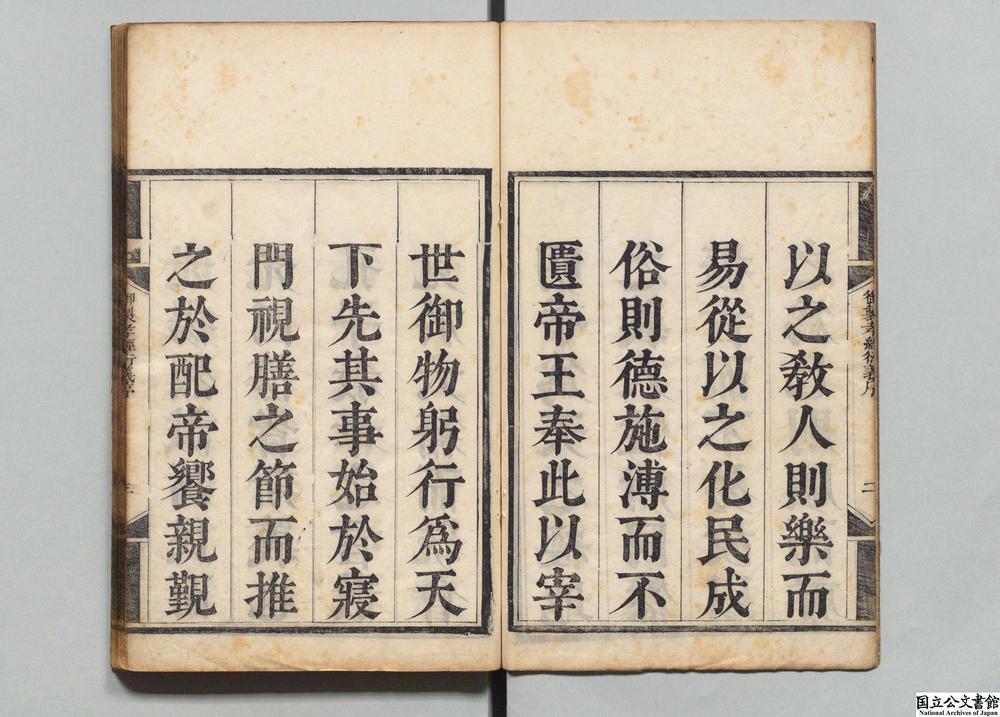 以之教人則樂而
易從以之化民成
俗則德施溥而不
匱帝王奉此以宰
世御物躬行爲天
下先其事始於寢
門視膳之節而推
之於配帝饗親覲
御製孝經衍義序
二
御製孝經衍義序
三
国立公文書館
National Archives of Japan